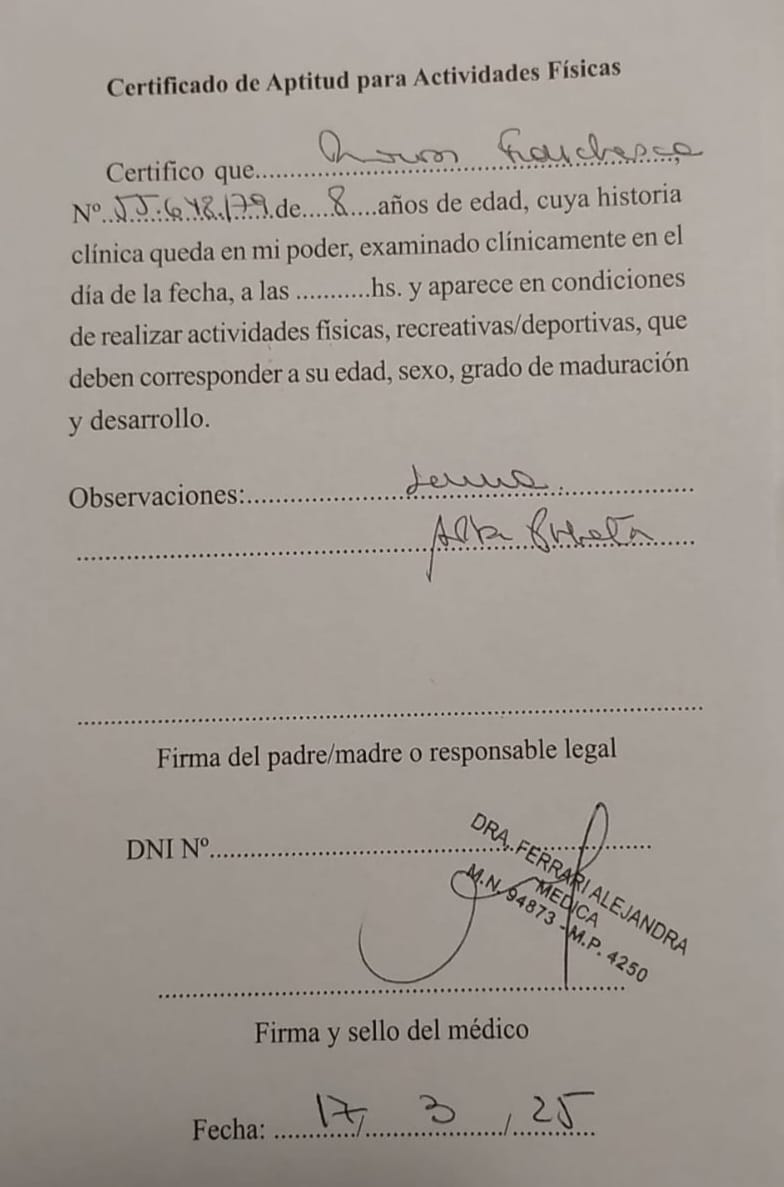 Certificado de Aptitud para Actividades Físicas
Certifico que............................................................
Nº....................de.....8....años de edad, cuya historia
clínica queda en mi poder, examinado clínicamente en el
día de la fecha, a las ...........hs. y aparece en condiciones
de realizar actividades físicas, recreativas/deportivas, que
deben corresponder a su edad, sexo, grado de maduración
y desarrollo.
Observaciones:............................................................
Alta
Firma del padre/madre o responsable legal
DNI Nº............................................................
DRA. FERRARI ALEJANDRA
MEDICA
M.N. 94873 - M.P. 4250
Firma y sello del médico
Fecha: 17 / 3 / 25